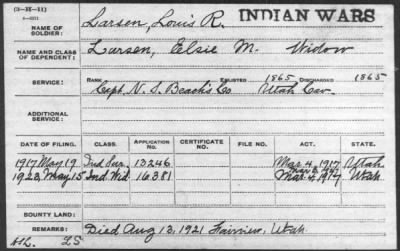 (3-III-11)
INDIAN WARS
NAME OF SOLDIER: Larsen, Louis R.
NAME AND CLASS OF DEPENDENT: Larsen, Elsie M. Widow
SERVICE: RANK Capt. N. S. Beach's Co ENLISTED 1865 DISCHARGED 1865
Utah Cav.
ADDITIONAL SERVICE:
DATE OF FILING. CLASS. APPLICATION NO. CERTIFICATE NO. FILE NO. ACT. STATE.
1917 May 19 Ind Sur. 13246 Mar. 4, 1917 Utah
1923, May 15 Ind Wid. 16381 Mar. 4, 1917 Utah
BOUNTY LAND:
REMARKS: Died Aug 13, 1921 Fairview, Utah